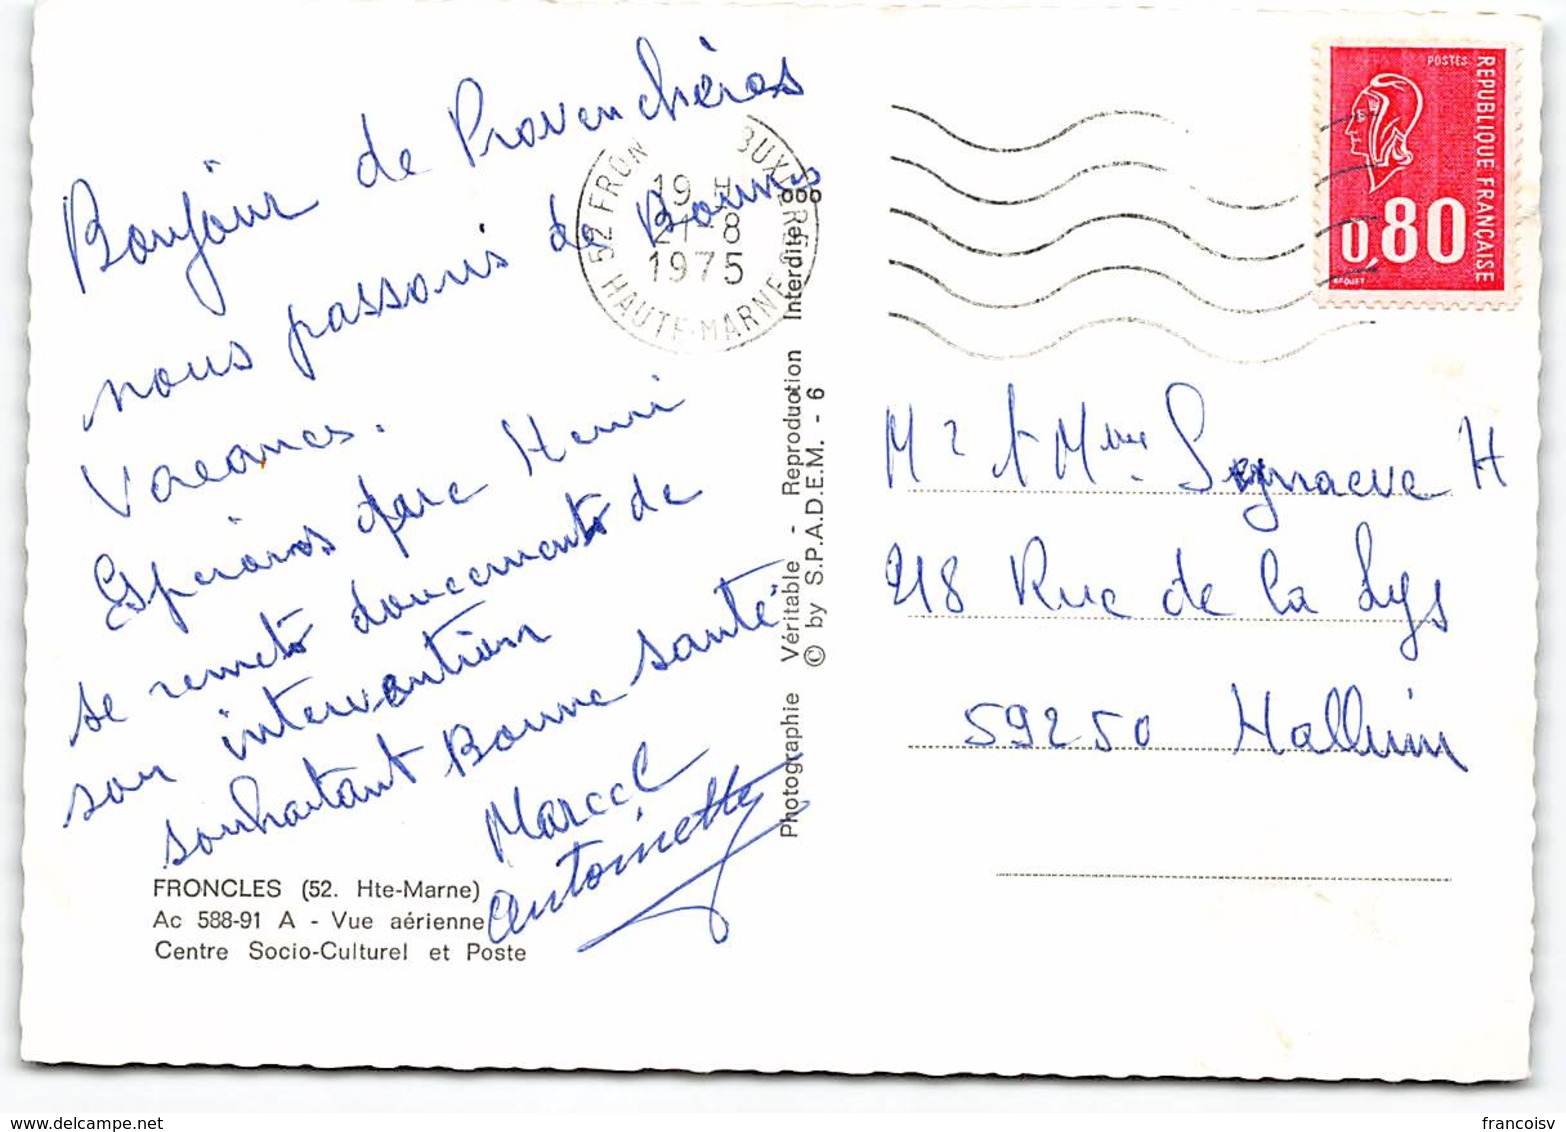 Bonjour de Provenchères
nous passons de Bonnes
Vacances.
Espérons que Henri
se remets doucements de
son intervention
souhaitant Bonne santé
Marcel
Antoinette
FRONCLES (52. Hte-Marne)
Ac 588-91 A - Vue aérienne
Centre Socio-Culturel et Poste
Photographie Véritable - Reproduction Interdite
© by S.P.A.D.E.M. - 6
52 FRON BUXIERES
19 H
21-8
1975
HAUTE-MARNE
POSTES
REPUBLIQUE FRANÇAISE
0,80
Mr & Mme H
218 Rue de la Lys
59250 Halluin
francoisv